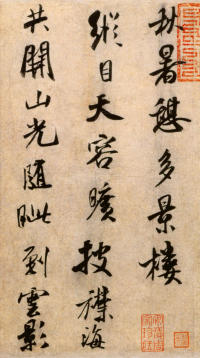 秋暑憩多景樓
縱目天容曠披襟海
共開山光隨眦到雲影